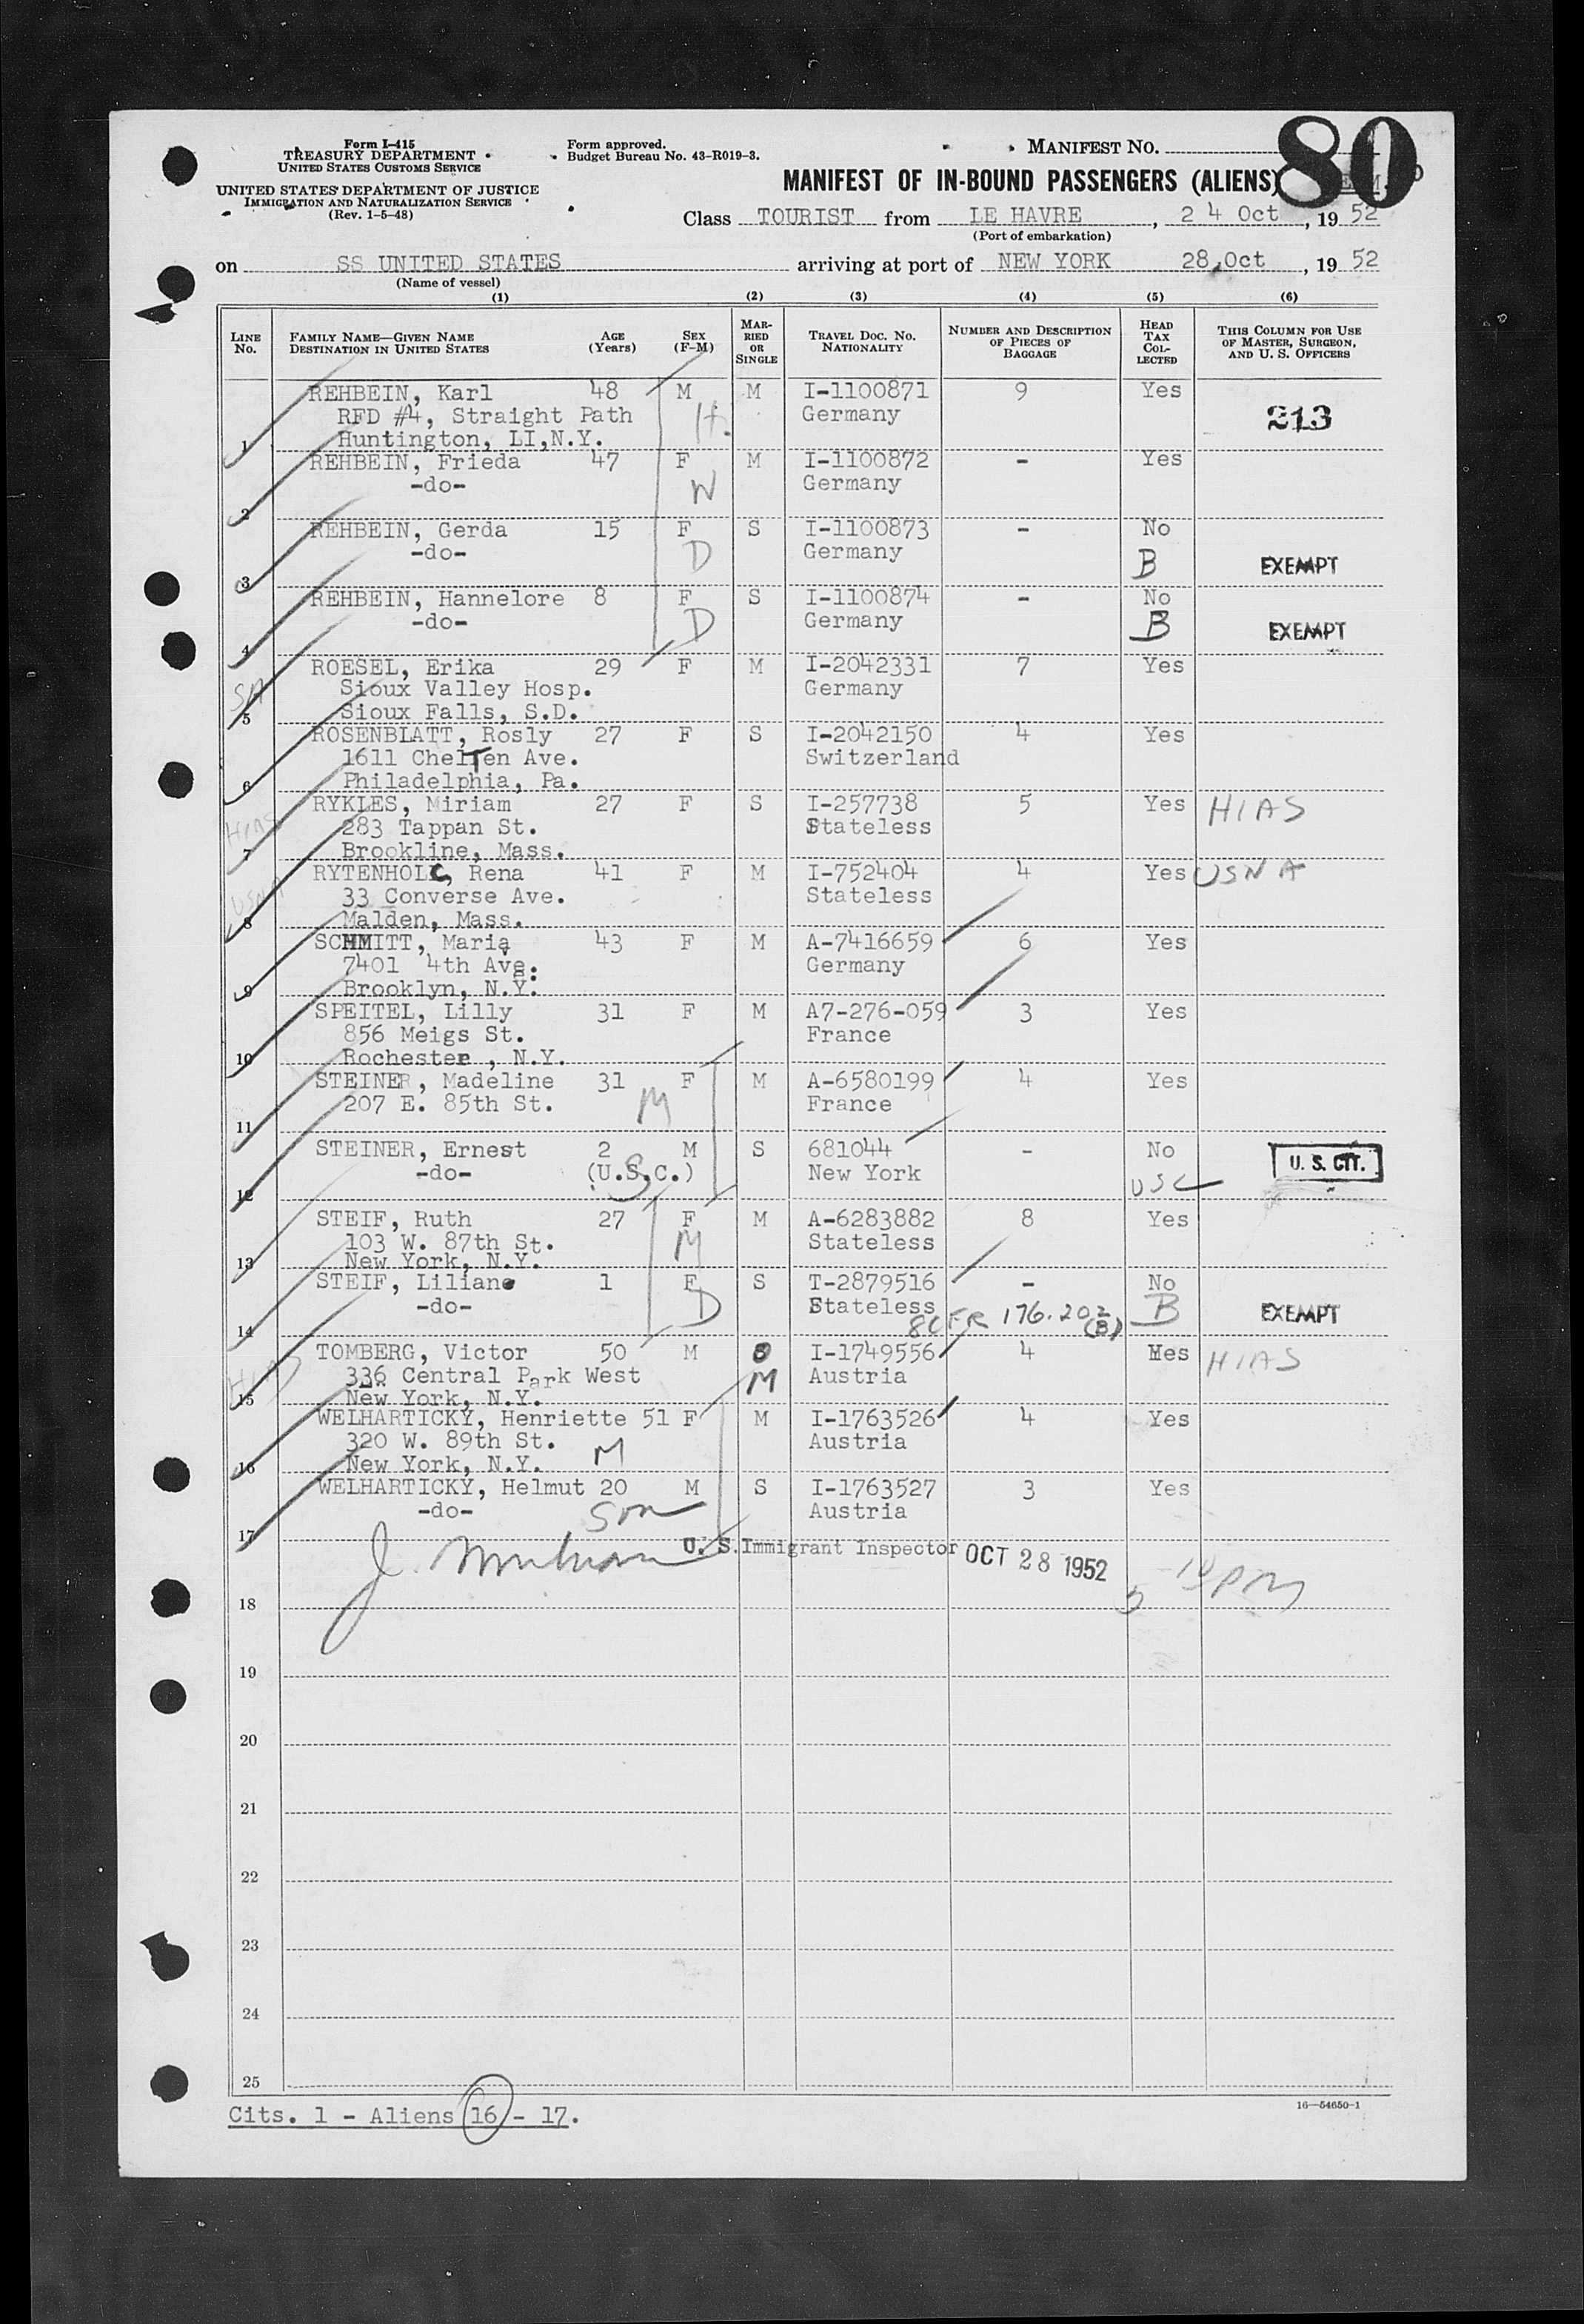 80
Form I-415
TREASURY DEPARTMENT
UNITED STATES CUSTOMS SERVICE
UNITED STATES DEPARTMENT OF JUSTICE
IMMIGRATION AND NATURALIZATION SERVICE
(Rev. 1-5-48)
Form approved.
Budget Bureau No. 43-R019-3.
MANIFEST NO.
MANIFEST OF IN-BOUND PASSENGERS (ALIENS)
Class TOURIST from LE HAVRE, 24 Oct, 19 52
(Port of embarkation)
on SS UNITED STATES arriving at port of NEW YORK 28, Oct, 19 52
(Name of vessel)
(1) (2) (3) (4) (5) (6)
LINE No. FAMILY NAME—GIVEN NAME DESTINATION IN UNITED STATES AGE (Years) SEX (F-M) MARRIED OR SINGLE TRAVEL DOC. NO. NATIONALITY NUMBER AND DESCRIPTION OF PIECES OF BAGGAGE HEAD TAX COLLECTED THIS COLUMN FOR USE OF MASTER, SURGEON, AND U. S. OFFICERS
REHBEIN, Karl 48 M M I-1100871 9 Yes
RFD #4, Straight Path H. Germany 213
1 Huntington, LI,N.Y.
REHBEIN, Frieda 47 F M I-1100872 - Yes
2 -do- W Germany
REHBEIN, Gerda 15 F S I-1100873 - No
3 -do- D Germany B EXEMPT
REHBEIN, Hannelore 8 F S I-1100874 - No
4 -do- D Germany B EXEMPT
ROESEL, Erika 29 F M I-2042331 7 Yes
Sioux Valley Hosp. Germany
5 Sioux Falls, S.D.
ROSENBLATT, Rosly 27 F S I-2042150 4 Yes
1611 Chelten Ave. Switzerland
6 Philadelphia, Pa.
RYKLES, Miriam 27 F S I-257738 5 Yes HIAS
HIAS 283 Tappan St. Stateless
7 Brookline, Mass.
RYTENHOLC, Rena 41 F M I-752404 4 Yes USNA
USNA 33 Converse Ave. Stateless
8 Malden, Mass.
SCHMITT, Maria 43 F M A-7416659 6 Yes
7401 4th Ave. Germany
9 Brooklyn, N.Y.
SPEITEL, Lilly 31 F M A7-276-059 3 Yes
856 Meigs St. France
10 Rochester, N.Y.
STEINER, Madeline 31 F M A-6580199 4 Yes
207 E. 85th St. M France
11
STEINER, Ernest 2 M S 681044 - No U. S. CIT.
12 -do- (U.S.C.) New York USC
STEIF, Ruth 27 F M A-6283882 8 Yes
103 W. 87th St. M Stateless
13 New York, N.Y.
STEIF, Liliane 1 F S T-2879516 - No
14 -do- D Stateless B EXEMPT
8CFR 176.202(B)
TOMBERG, Victor 50 M M I-1749556 4 Yes HIAS
HIAS 336 Central Park West Austria
15 New York, N.Y.
WELHARTICKY, Henriette 51 F M I-1763526 4 Yes
320 W. 89th St. M Austria
16 New York, N.Y.
WELHARTICKY, Helmut 20 M S I-1763527 3 Yes
17 -do- Son Austria
U. S. Immigrant Inspector OCT 28 1952
18
19
20
21
22
23
24
25
Cits. 1 - Aliens 16 - 17.
16—54650-1